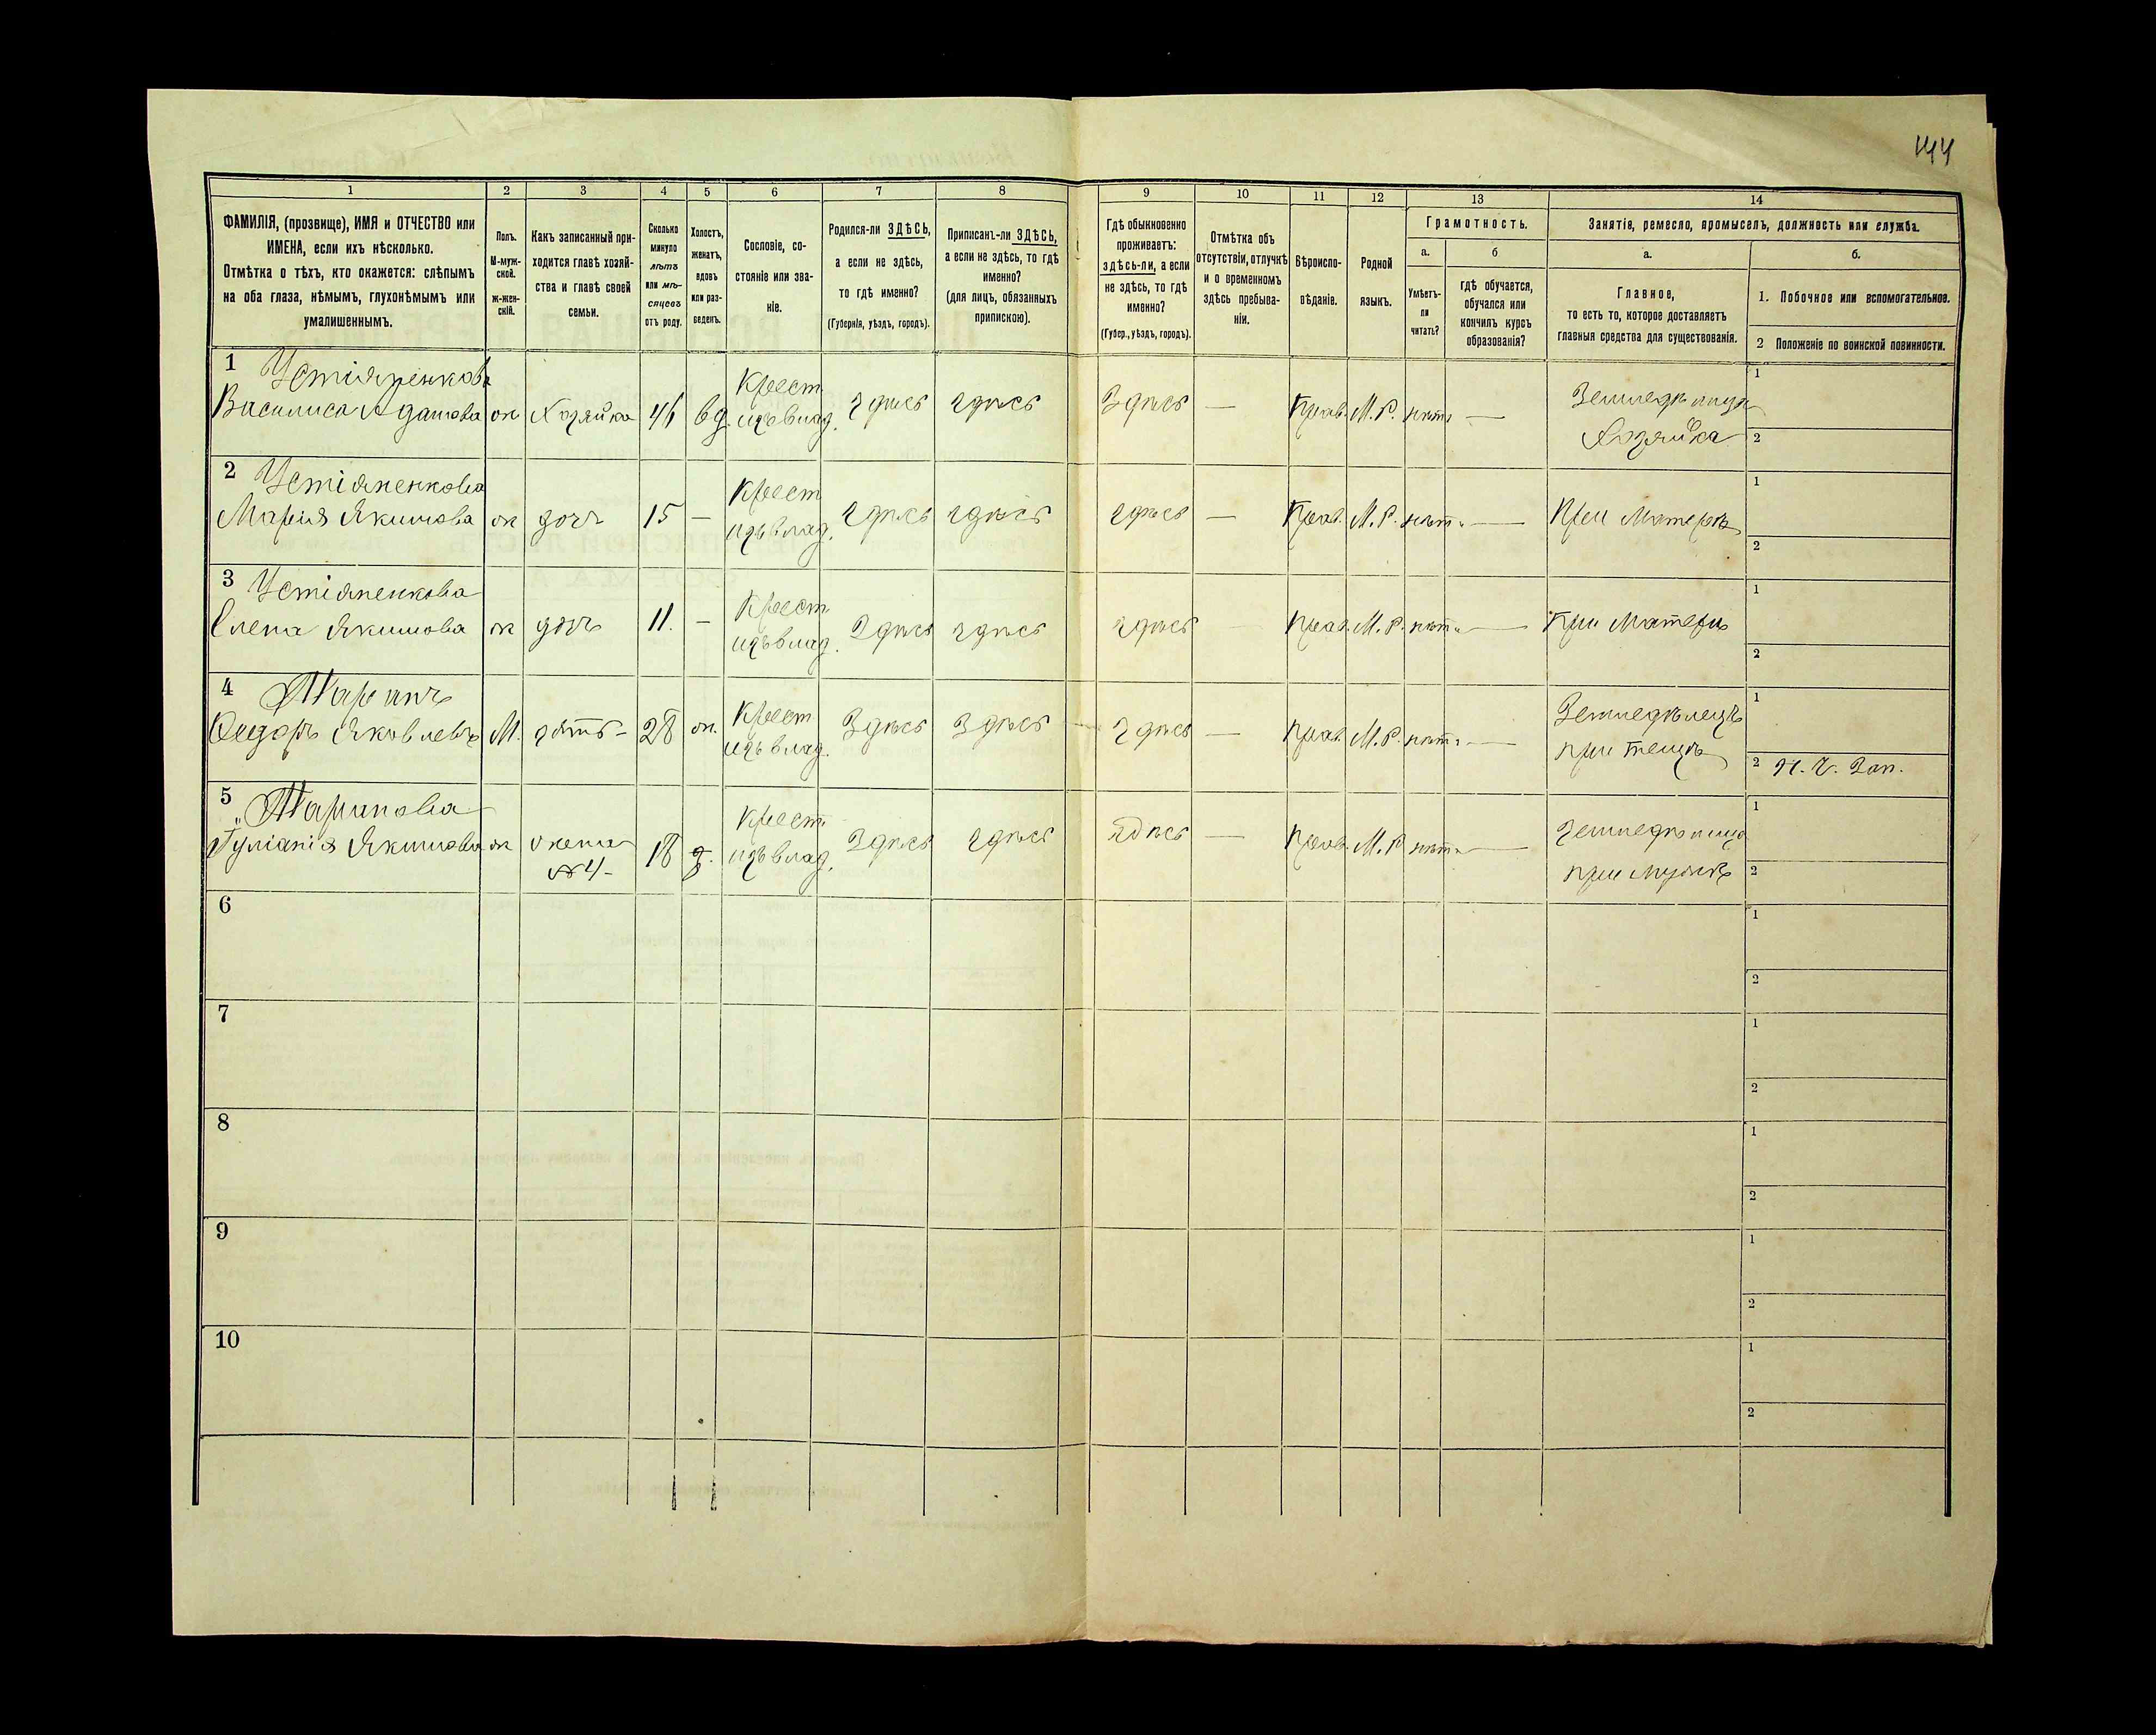 144
1 2 3 4 5 6 7 8 9 10 11 12 13 14
ФАМИЛІЯ, (прозвище), ИМЯ и ОТЧЕСТВО или
ИМЕНА, если ихъ нѣсколько.
Отмѣтка о тѣхъ, кто окажется: слѣпымъ
на оба глаза, нѣмымъ, глухонѣмымъ или
умалишеннымъ.
Полъ.
М-муж-
ской.
ж-жен-
скій.
Какъ записанный при-
ходится главѣ хозяй-
ства и главѣ своей
семьи.
Сколько
минуло
лѣтъ
или мѣ-
сяцевъ
отъ роду.
Холостъ,
женатъ,
вдовъ
или раз-
веденъ.
Сословіе, со-
стояніе или зва-
ніе.
Родился-ли ЗДѢСЬ,
а если не здѣсь,
то гдѣ именно?
(Губернія, уѣздъ, городъ).
Приписанъ-ли ЗДѢСЬ,
а если не здѣсь, то гдѣ
именно?
(для лицъ, обязанныхъ
припискою).
Гдѣ обыкновенно
проживаетъ:
здѣсь-ли, а если
не здѣсь, то гдѣ
именно?
(Губер., уѣздъ, городъ).
Отмѣтка объ
отсутствіи, отлучкѣ
и о временномъ
здѣсь пребыва-
ніи.
Вѣроиспо-
вѣданіе.
Родной
языкъ.
Грамотность.
а.
Умѣетъ-
ли
читать?
б
гдѣ обучается,
обучался или
кончилъ курсъ
образованія?
Занятіе, ремесло, промыселъ, должность или служба.
а.
Главное,
то есть то, которое доставляетъ
главныя средства для существованія.
б.
1. Побочное или вспомогательное.
2 Положеніе по воинской повинности.
1 Устіяненкова Крест. Земледѣлица 1
Василиса Адамова ж Хозяйка 46 вд. изъ влад. здѣсь здѣсь Здѣсь — Прав. М.Р. нѣтъ — Хозяйка 2
2 Устіяненкова Крест 1
Марія Якимова ж дочь 15 — изъ влад. здѣсь здѣсь здѣсь — Прав. М.Р. нѣтъ — При Матерѣ 2
3 Устіяненкова Крест 1
Елена Якимова ж дочь 11. — изъ влад. Здѣсь здѣсь здѣсь — Прав. М.Р. нѣтъ — При Матерѣ 2
4 Таранъ Крест Земледѣлецъ 1
Федоръ Яковлевъ М. зять 28 ж. изъ влад. Здѣсь Здѣсь здѣсь — Прав. М.Р. нѣтъ — при тещѣ 2 Н. Ч. Зап.
5 Таранова Крест. Земледѣлица 1
Гуліанія Якимова ж жена №4 18 з. изъ влад. Здѣсь здѣсь здѣсь — Прав. М.Р нѣтъ — при мужѣ 2
6 1
2
7 1
2
8 1
2
9 1
2
10 1
2